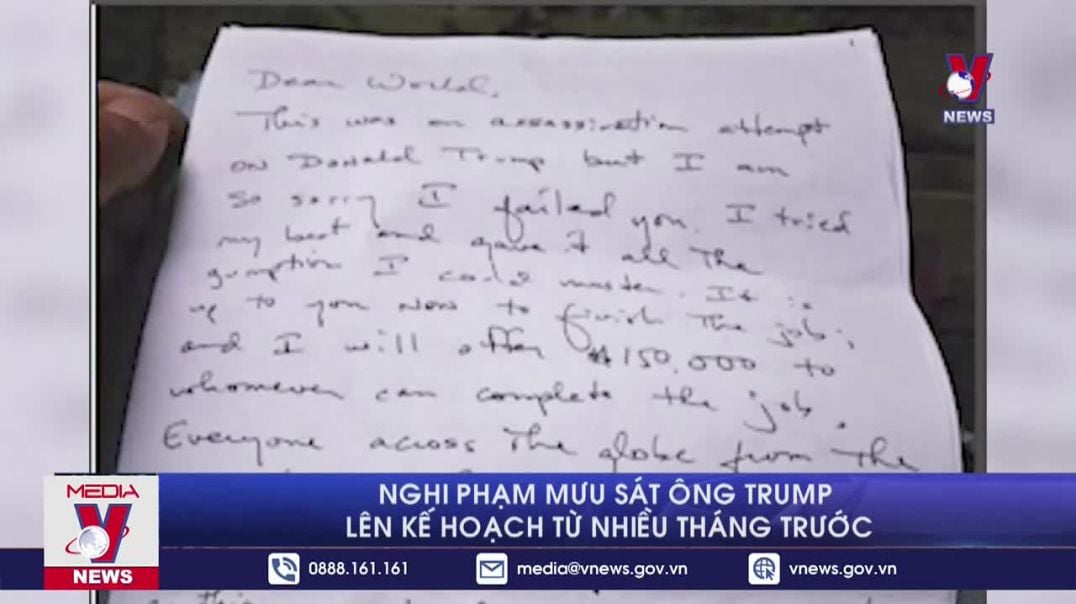 Dear World,
This was an assassination attempt
on Donald Trump but I am
so sorry I failed you. I tried
my best and gave it all the
gumption I could muster. It is
up to you now to finish the job;
and I will offer $150,000 to
whomever can complete the job.
Everyone across the globe from the
V
NEWS
NGHI PHẠM MƯU SÁT ÔNG TRUMP
LÊN KẾ HOẠCH TỪ NHIỀU THÁNG TRƯỚC
MEDIA
V
NEWS
0888.161.161
media@vnews.gov.vn
vnews.gov.vn